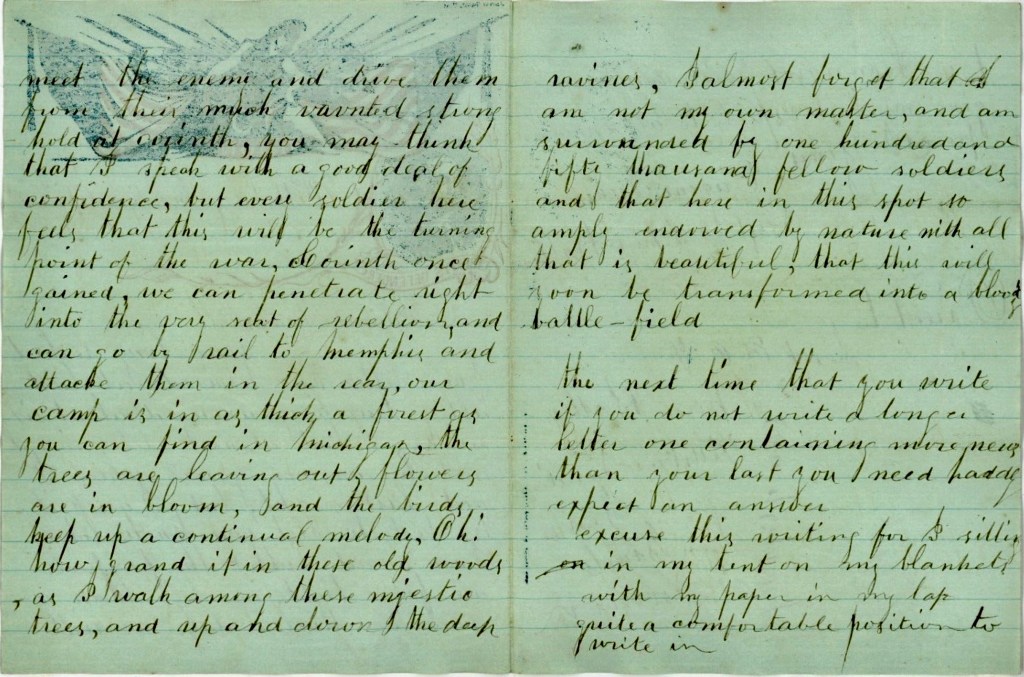 meet the enemy and drive them
from their much vaunted strong
hold at corinth, you may think
that I speak with a good deal of
confidence, but every soldier here
feels that this will be the turning
point of the war, Corinth once
gained, we can penetrate right
into the very seat of rebellion, and
can go by rail to Memphis and
attacke them in the rear, our
camp is in as thick a forest as
you can find in Michigan, the
trees are leaving out, flowers
are in bloom, and the birds
keep up a continual melody, Oh!
how grand it in these old woods
as I walk among these mjestic
trees, and up and down the deep
ravines, I almost forget that I
am not my own master, and am
surrounded by one hundred and
fifty thousand fellow soldiers
and that here in this spot so
amply endowed by nature with all
that is beautiful, that this will
soon be transformed into a bloody
battle-field
the next time that you write
if you do not write a longer
letter one containing more news
than your last you need
expect an answer
excuse this writing for I sitting
in my tent on my blankets
with my paper in my lap
quite a comfortable position to
write in